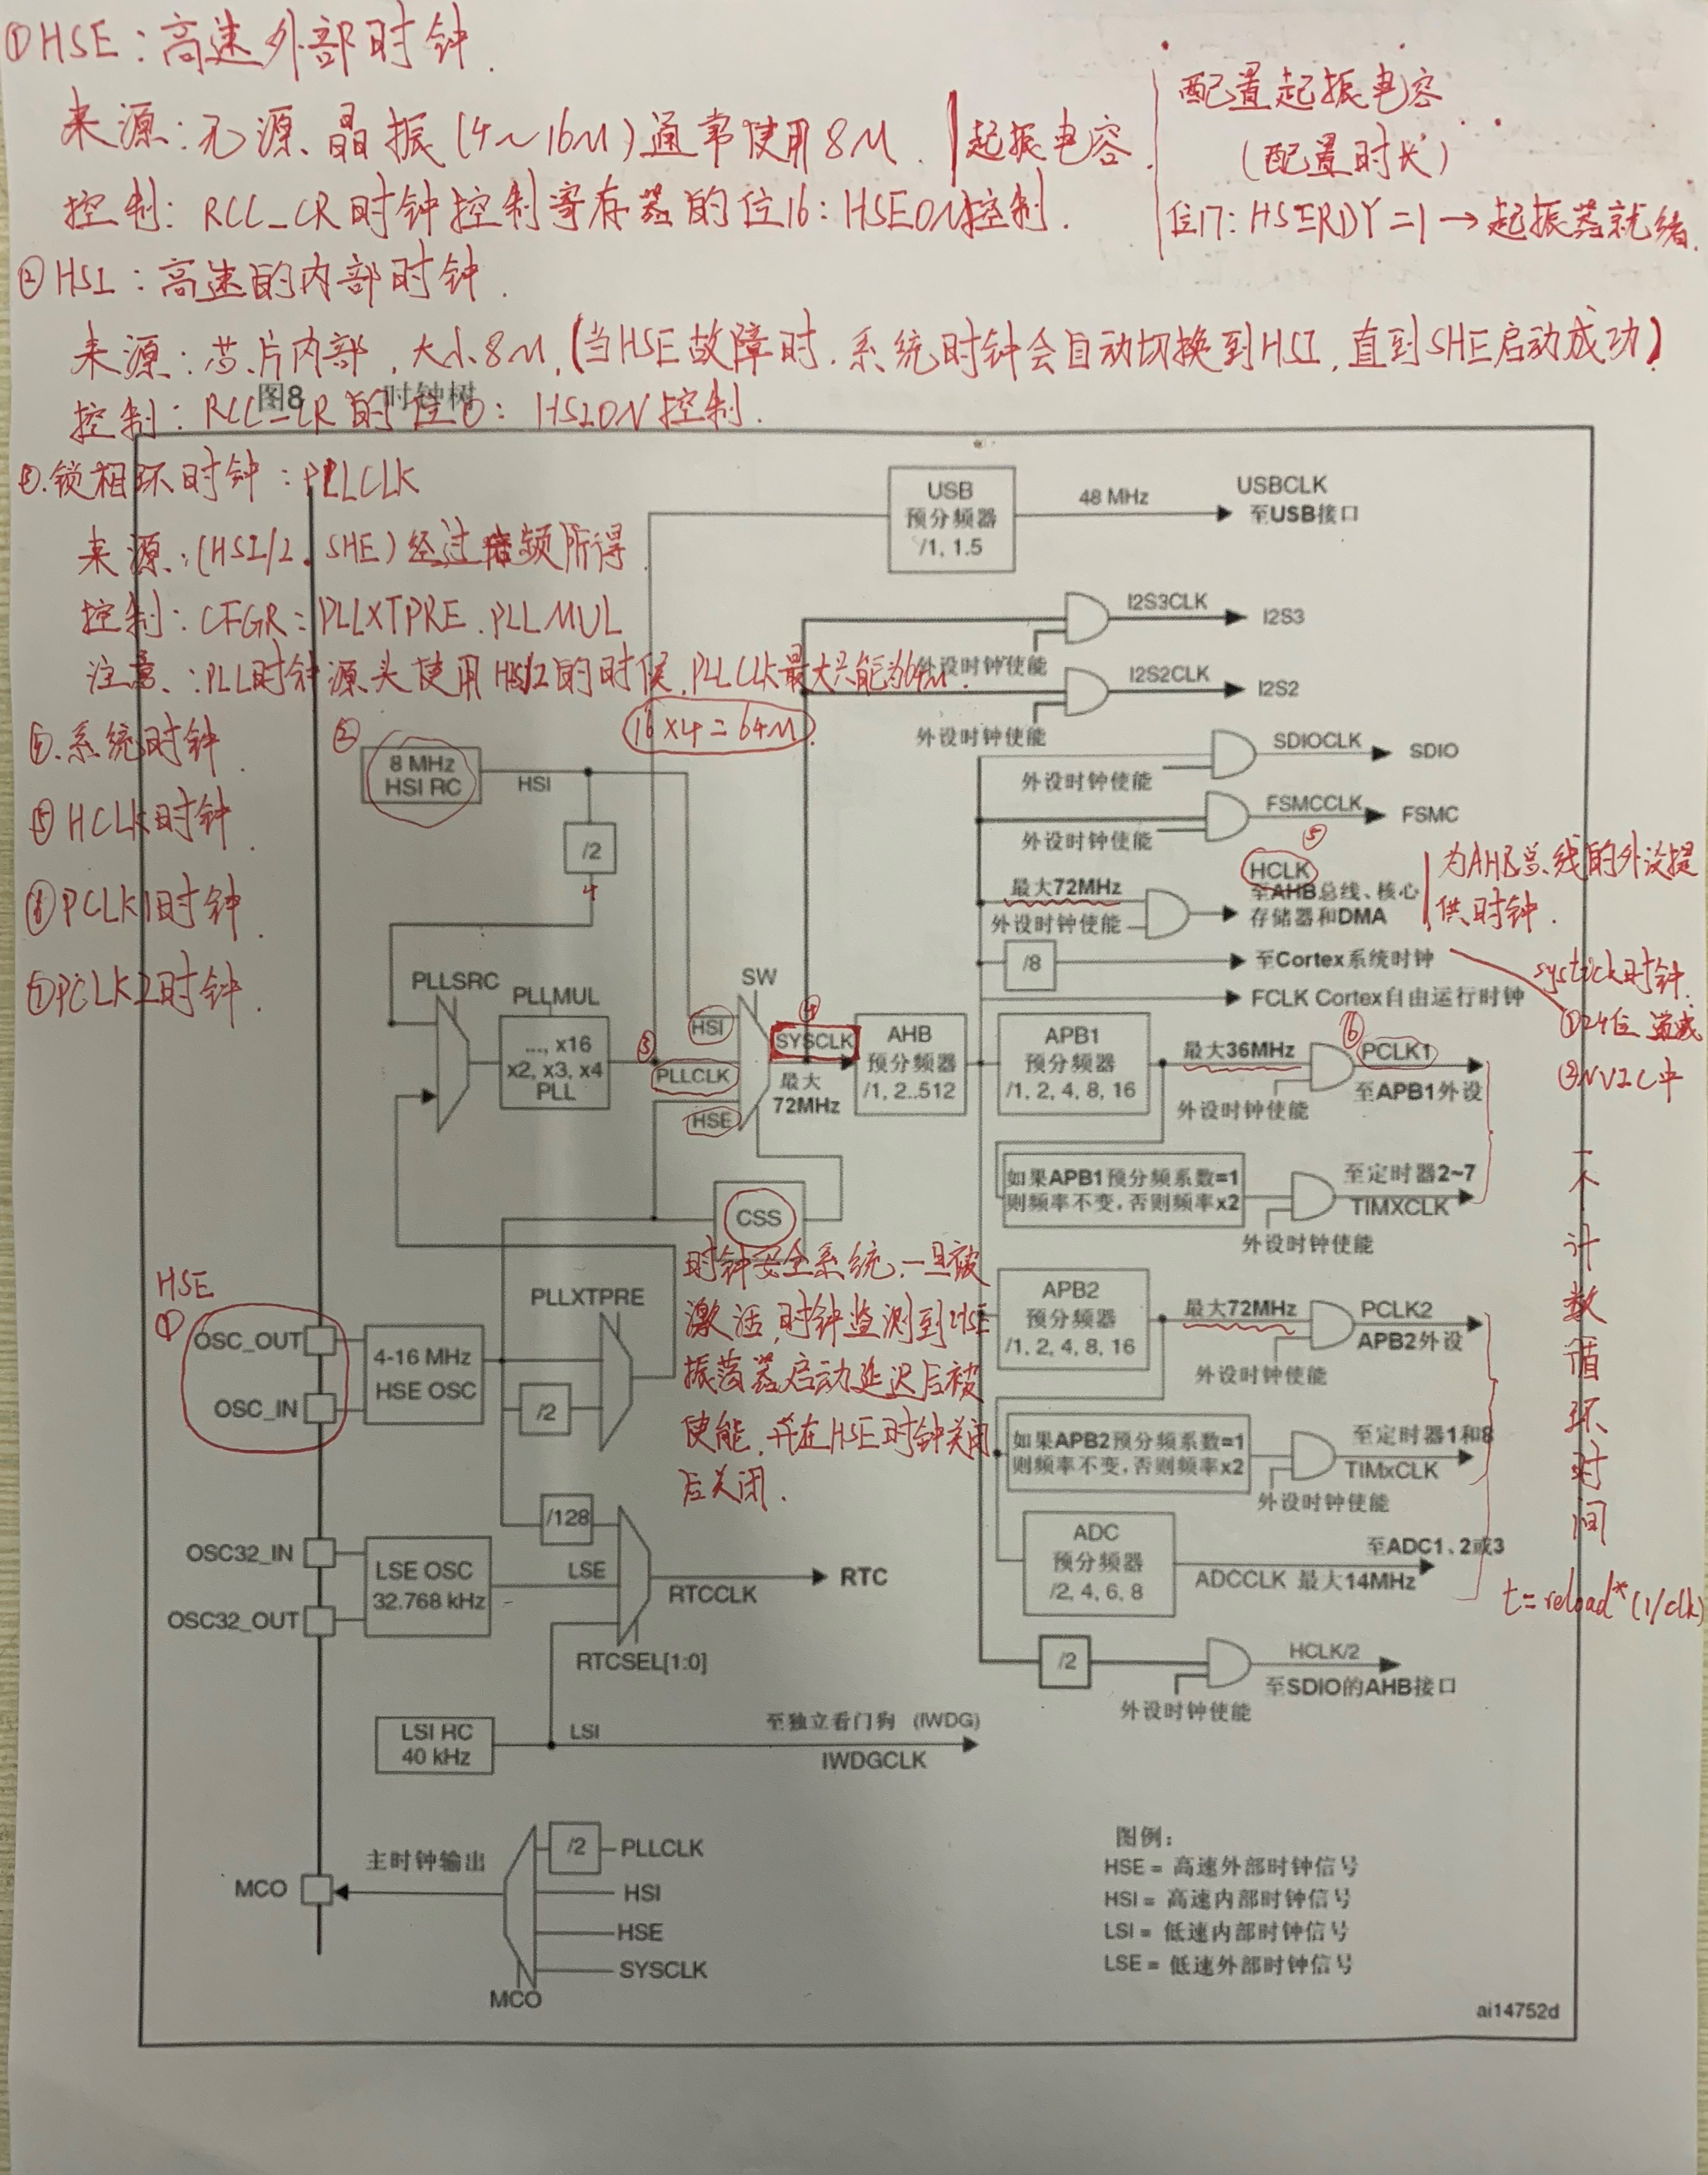 ①HSE：高速外部时钟.
来源：无源晶振(4~16M)通常使用8M. 起振电容.
配置起振电容
(配置时长)
控制：RCC_CR时钟控制寄存器的位16：HSEON控制.
位17：HSERDY=1→起振器就绪.
②HSI：高速的内部时钟.
来源：芯片内部，大小8M,(当HSE故障时.系统时钟会自动切换到HSI,直到SHE启动成功)
图8 时钟树
控制：RCC_CR的位0：HSION控制.
③.锁相环时钟：PLLCLK
来源：(HSI/2. SHE)经过倍频所得
控制：CFGR：PLLXTPRE.PLLMUL
注意：PLL时钟源头使用HSI/2的时候,PLLCLK最大只能为64M.
16×4=64M.
④.系统时钟.
⑤HCLK时钟.
⑥PCLK1时钟.
⑦PCLK2时钟.
USB
预分频器
/1, 1.5
48 MHz
USBCLK
至USB接口
I2S3CLK
I2S3
外设时钟使能
I2S2CLK
I2S2
外设时钟使能
SDIOCLK
SDIO
外设时钟使能
FSMCCLK
FSMC
外设时钟使能
②
8 MHz
HSI RC
HSI
/2
4
⑤
HCLK
最大72MHz
至AHB总线、核心
存储器和DMA
外设时钟使能
为AHB总线的外设提
供时钟.
/8
至Cortex系统时钟
FCLK Cortex自由运行时钟
systick时钟.
①24位 递减
②NVIC中
一个计数循环时间
t=reload*(1/clk)
PLLSRC
PLLMUL
..., x16
x2, x3, x4
PLL
③
SW
HSI
PLLCLK
HSE
④
SYSCLK
最大
72MHz
AHB
预分频器
/1, 2..512
APB1
预分频器
/1, 2, 4, 8, 16
最大36MHz
⑥
PCLK1
至APB1外设
外设时钟使能
如果APB1预分频系数=1
则频率不变，否则频率x2
至定时器2~7
TIMXCLK
外设时钟使能
CSS
时钟安全系统.一旦被
激活,时钟监测到HSE
振荡器启动延迟后被
使能,并在HSE时钟关闭
后关闭.
APB2
预分频器
/1, 2, 4, 8, 16
最大72MHz
PCLK2
APB2外设
外设时钟使能
如果APB2预分频系数=1
则频率不变，否则频率x2
至定时器1和8
TIMxCLK
外设时钟使能
HSE
①
OSC_OUT
OSC_IN
4-16 MHz
HSE OSC
PLLXTPRE
/2
/128
ADC
预分频器
/2, 4, 6, 8
至ADC1、2或3
ADCCLK 最大14MHz
OSC32_IN
OSC32_OUT
LSE OSC
32.768 kHz
LSE
RTC
RTCCLK
RTCSEL[1:0]
/2
HCLK/2
至SDIO的AHB接口
外设时钟使能
LSI RC
40 kHz
LSI
至独立看门狗 (IWDG)
IWDGCLK
主时钟输出
MCO
/2
PLLCLK
HSI
HSE
SYSCLK
MCO
图例：
HSE = 高速外部时钟信号
HSI = 高速内部时钟信号
LSI = 低速内部时钟信号
LSE = 低速外部时钟信号
ai14752d